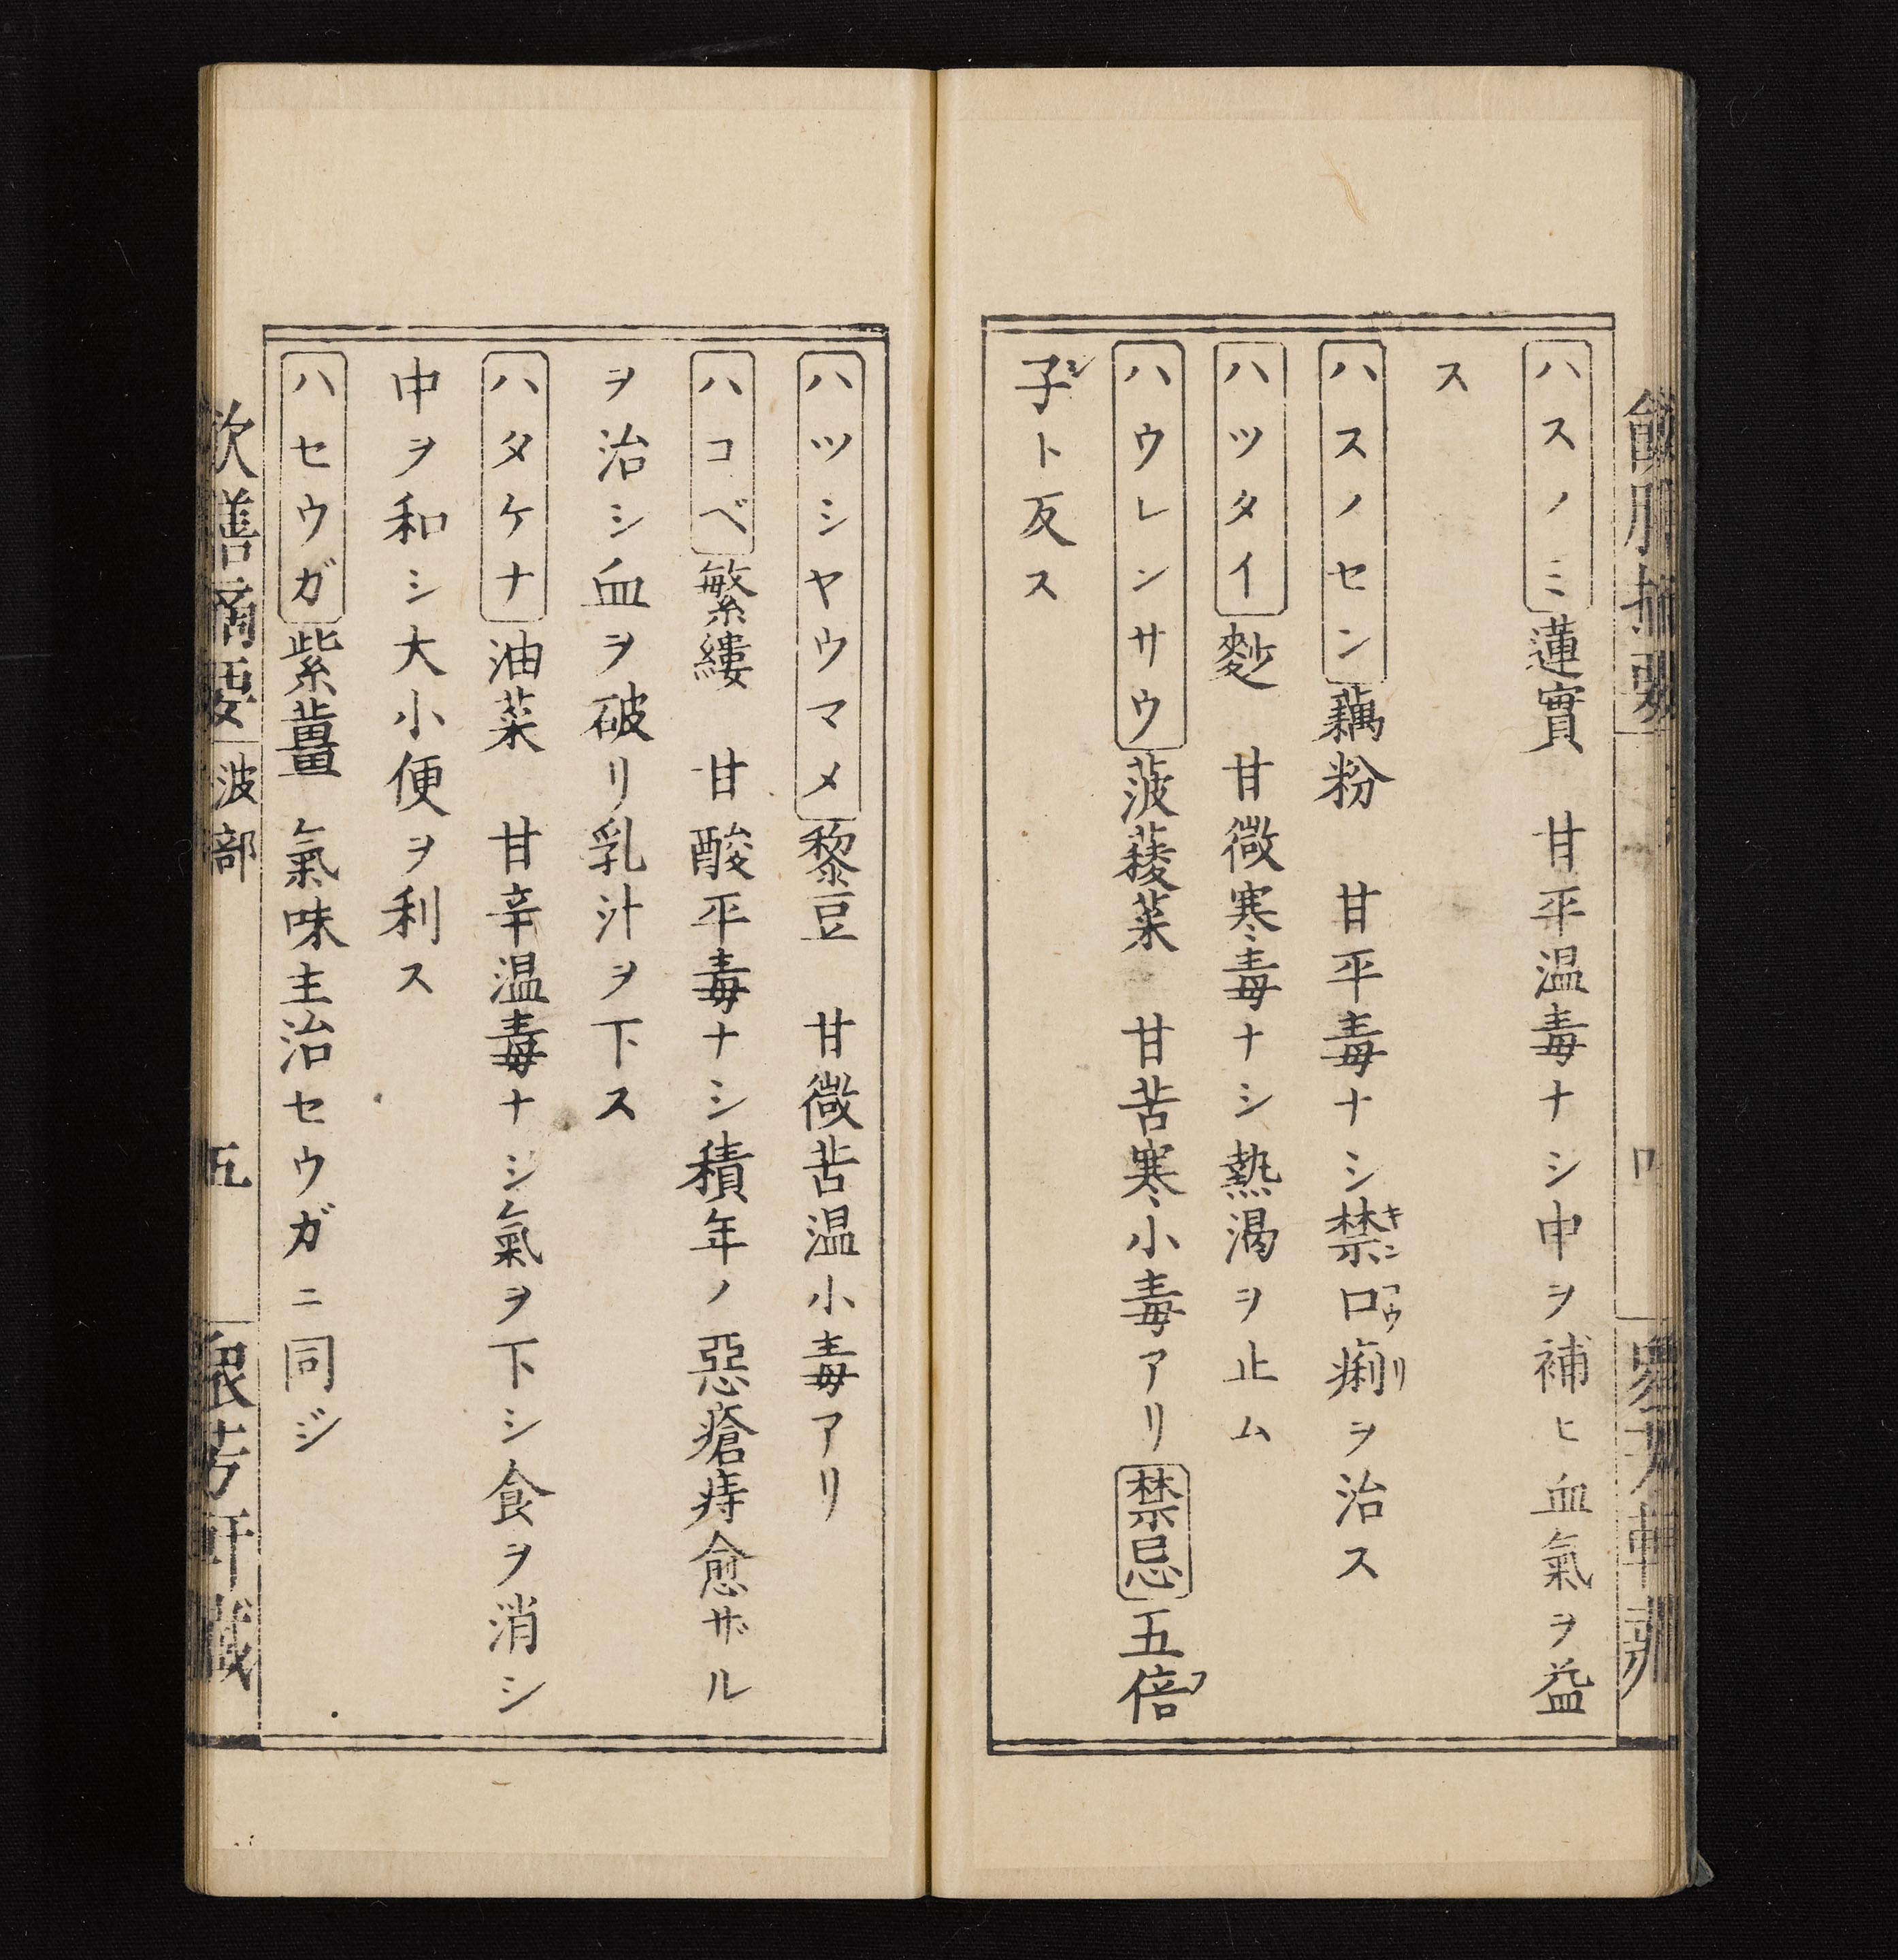 ハスノミ蓮實　甘平温毒ナシ中ヲ補ヒ血氣ヲ益
ス
ハスノセン藕粉　甘平毒ナシ禁口痢キンコウリヲ治ス
ハツタイ麨　甘微寒毒ナシ熱渇ヲ止ム
ハウレンサウ菠薐菜　甘苦寒小毒アリ禁忌五倍フ
子シト反ス
ハツシヤウマメ黎豆　甘微苦温小毒アリ
ハコベ繁縷　甘酸平毒ナシ積年ノ惡瘡痔愈ザル
ヲ治シ血ヲ破リ乳汁ヲ下ス
ハタケナ油菜　甘辛温毒ナシ氣ヲ下シ食ヲ消シ
中ヲ和シ大小便ヲ利ス
ハセウガ紫薑　氣味主治セウガニ同ジ
膳摘要　波部　五